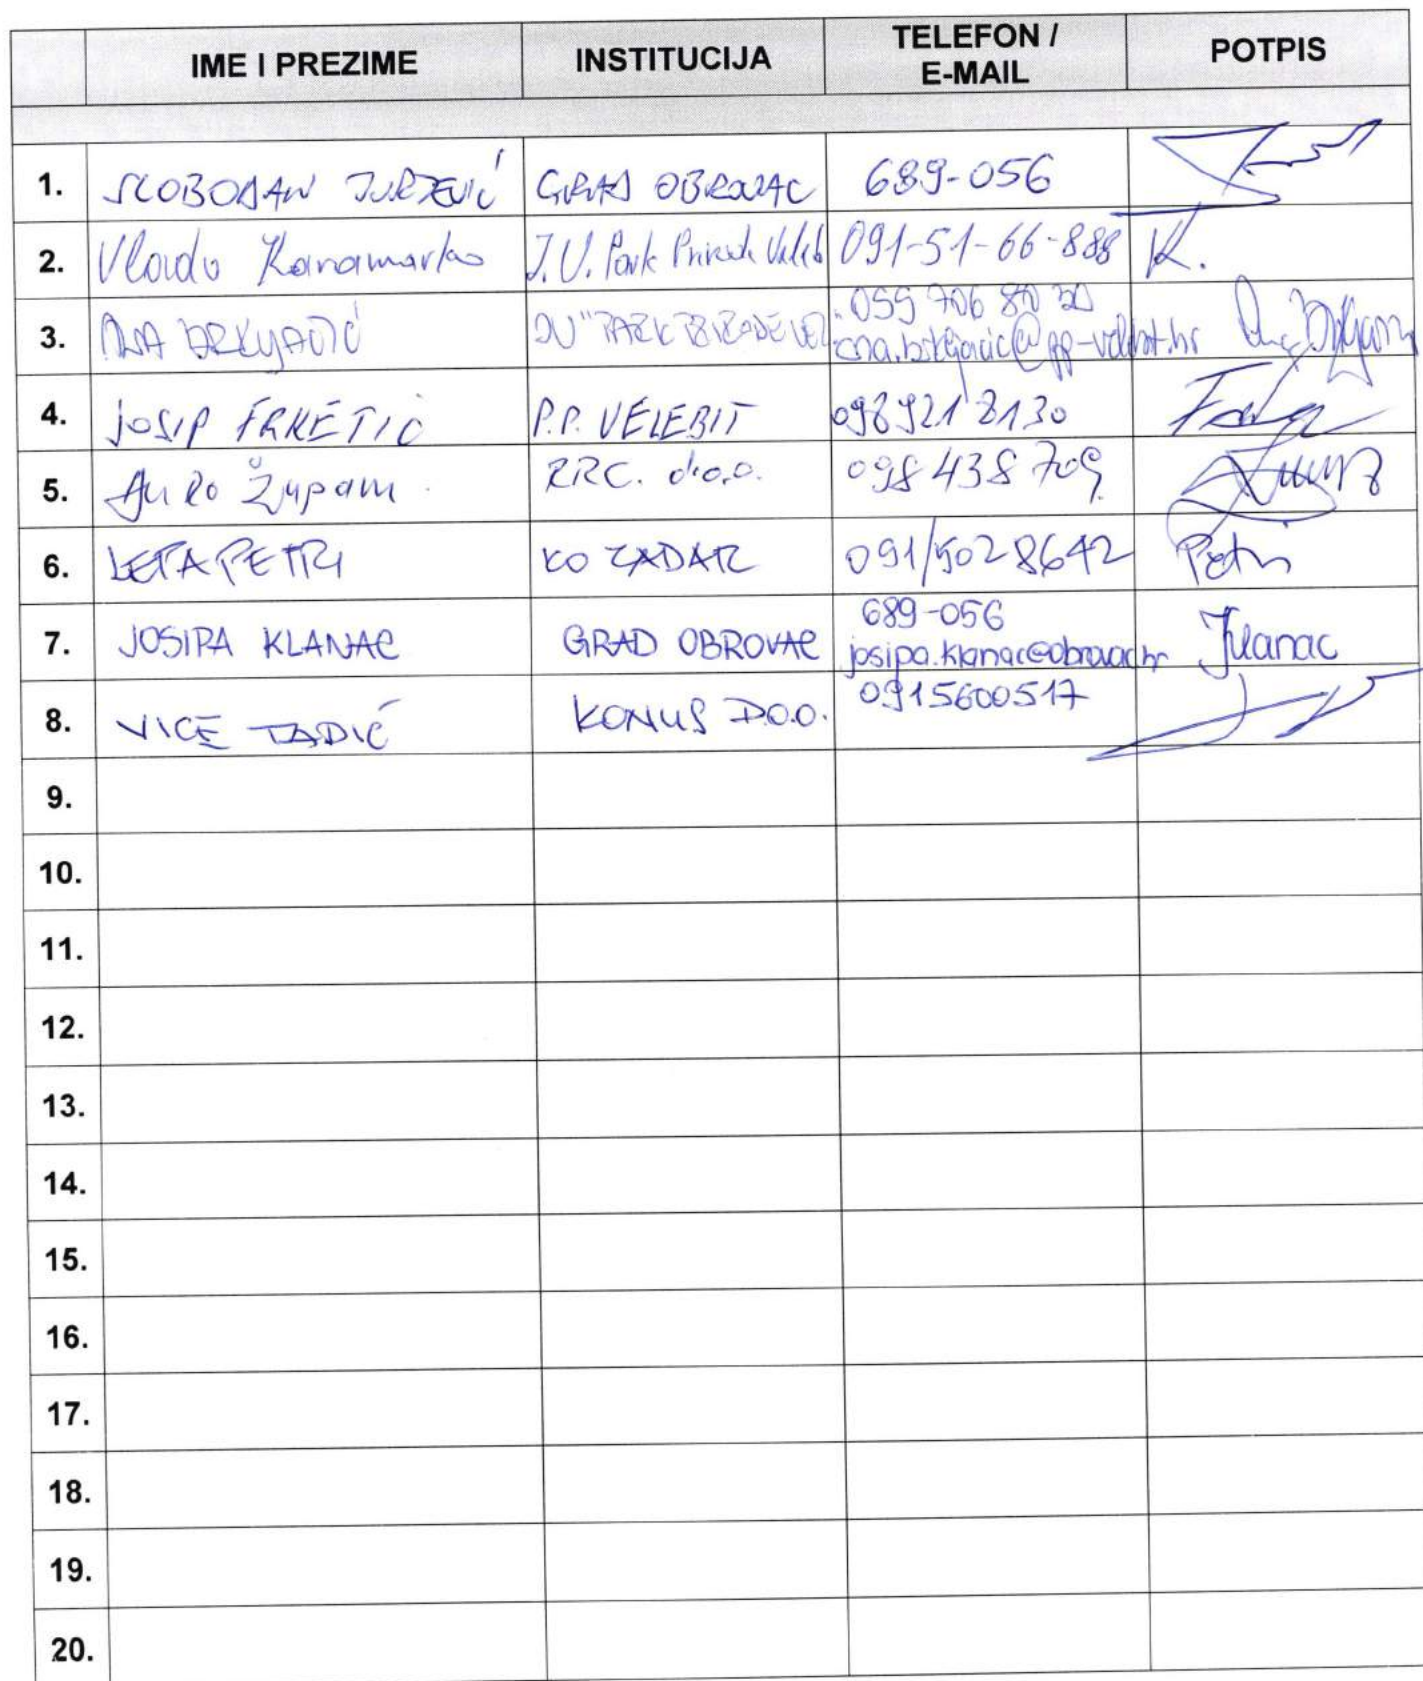 IME I PREZIME INSTITUCIJA TELEFON / E-MAIL POTPIS
1. SLOBODAN JURJEVIĆ GRAD OBROVAC 689-056
2. Vlado Karamarko J.U. Park Prirode Veleb 091-51-66-888 K.
3. ANA BRKLJAČIĆ JU "PARK PRIRODE VEL. 059 706 80 30
ana.brkljacic@pp-velebit.hr
4. JOSIP FRKETIĆ P.P. VELEBIT 098 921 8130
5. Župan RRC. d.o.o. 098 438 709
6. PETRI KO ZADAR 091/502 8642 Petri
7. JOSIPA KLANAC GRAD OBROVAC 689-056
josipa.klanac@obrovac.hr JKlanac
8. VICE TADIĆ KONUS D.O.O. 0915600517
9.
10.
11.
12.
13.
14.
15.
16.
17.
18.
19.
20.